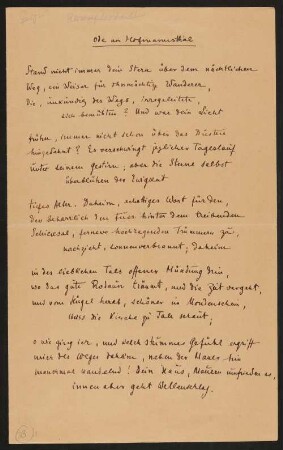 Ode an Hofmannsthal
Stand nicht immer dein Stern über dem nächtlichen
Weg, ein Weiser für ohnmächtig Wanderer,
die, unkundig des Wegs, irregeleitete,
sich bemühten? Und war dein Licht
früher, immer nicht schon über das Düstere
hingebahnt? Es verschränkt jeglicher Tageslauf
unter seinem Gestirn, aber die Sterne selbst
überblühen der Ewigkeit
tiefes Alter. Daheim, schattiges Wort für den,
den beharrlich den hinter dem treibenden
Schicksal, fernem hochragenden Trümmern zu,
nachzieht, daheim
in des lieblichen Tals offener Mündung drin,
wo das gute Rodaun träumt, und die Zeit vergeht,
und vom Hügel herab, schöner im Mondenschein,
die Kirche zu Tale schaut;
o wie ging ich, und welch stummes Gefühl ergriff
mich des Weges dahin, neben der Mauer hin
manchmal wandelnd! Dein Haus, Mauern umfrieden es,
innen aber geht Wellenschlag.